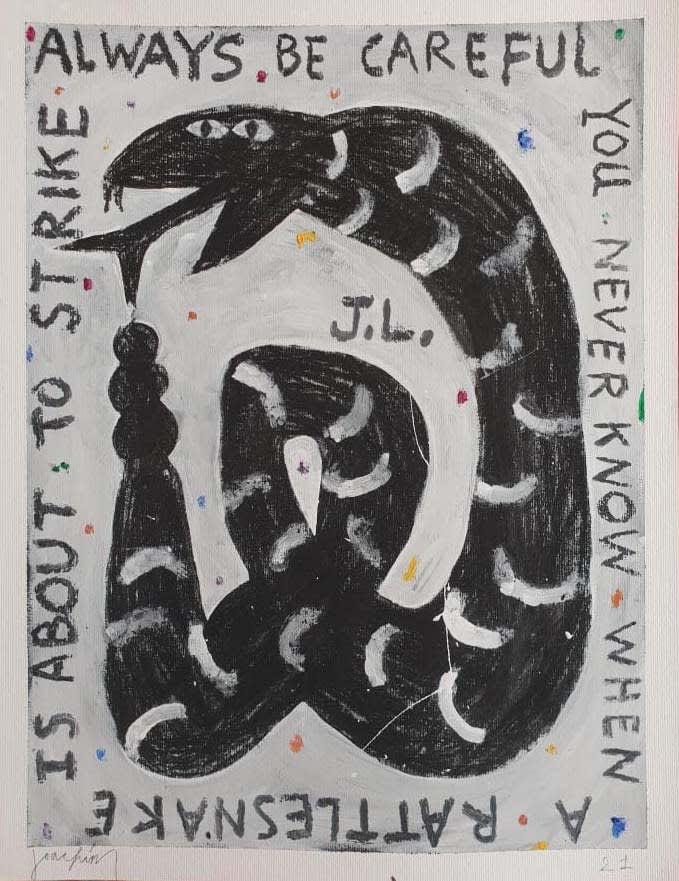 ALWAYS BE CAREFUL
YOU NEVER KNOW WHEN
A RATTLESNAKE
IS ABOUT TO STRIKE
J.L.
Joachim
21